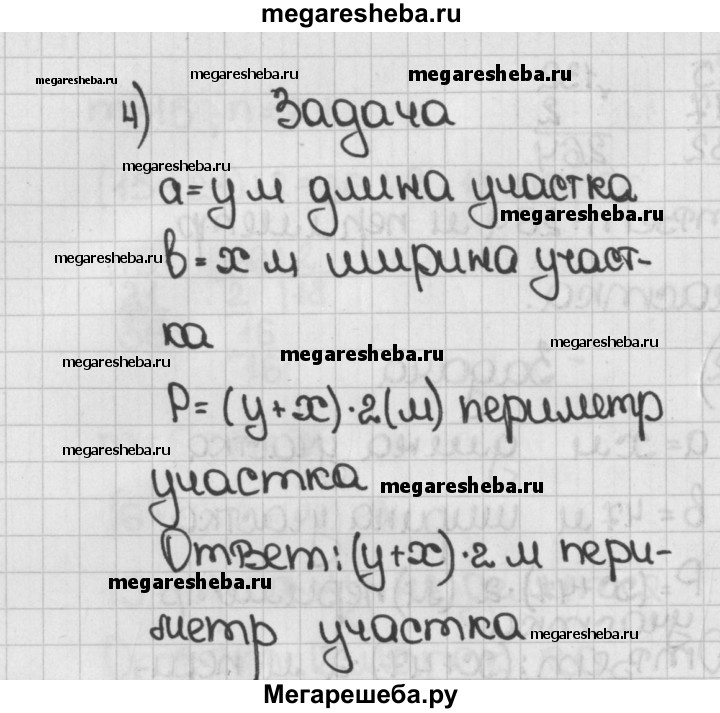 megaresheba.ru
megaresheba.ru megaresheba.ru megaresheba.ru
4) Задача
megaresheba.ru
a = y м длина участка
megaresheba.ru
megaresheba.ru
в = x м ширина участ-
ка
megaresheba.ru
megaresheba.ru
megaresheba.ru
P = (y+x)·2(м) периметр
megaresheba.ru
участка
megaresheba.ru
Ответ: (y+x)·2 м пери-
megaresheba.ru
метр участка
megaresheba.ru
Мегарешеба.ру